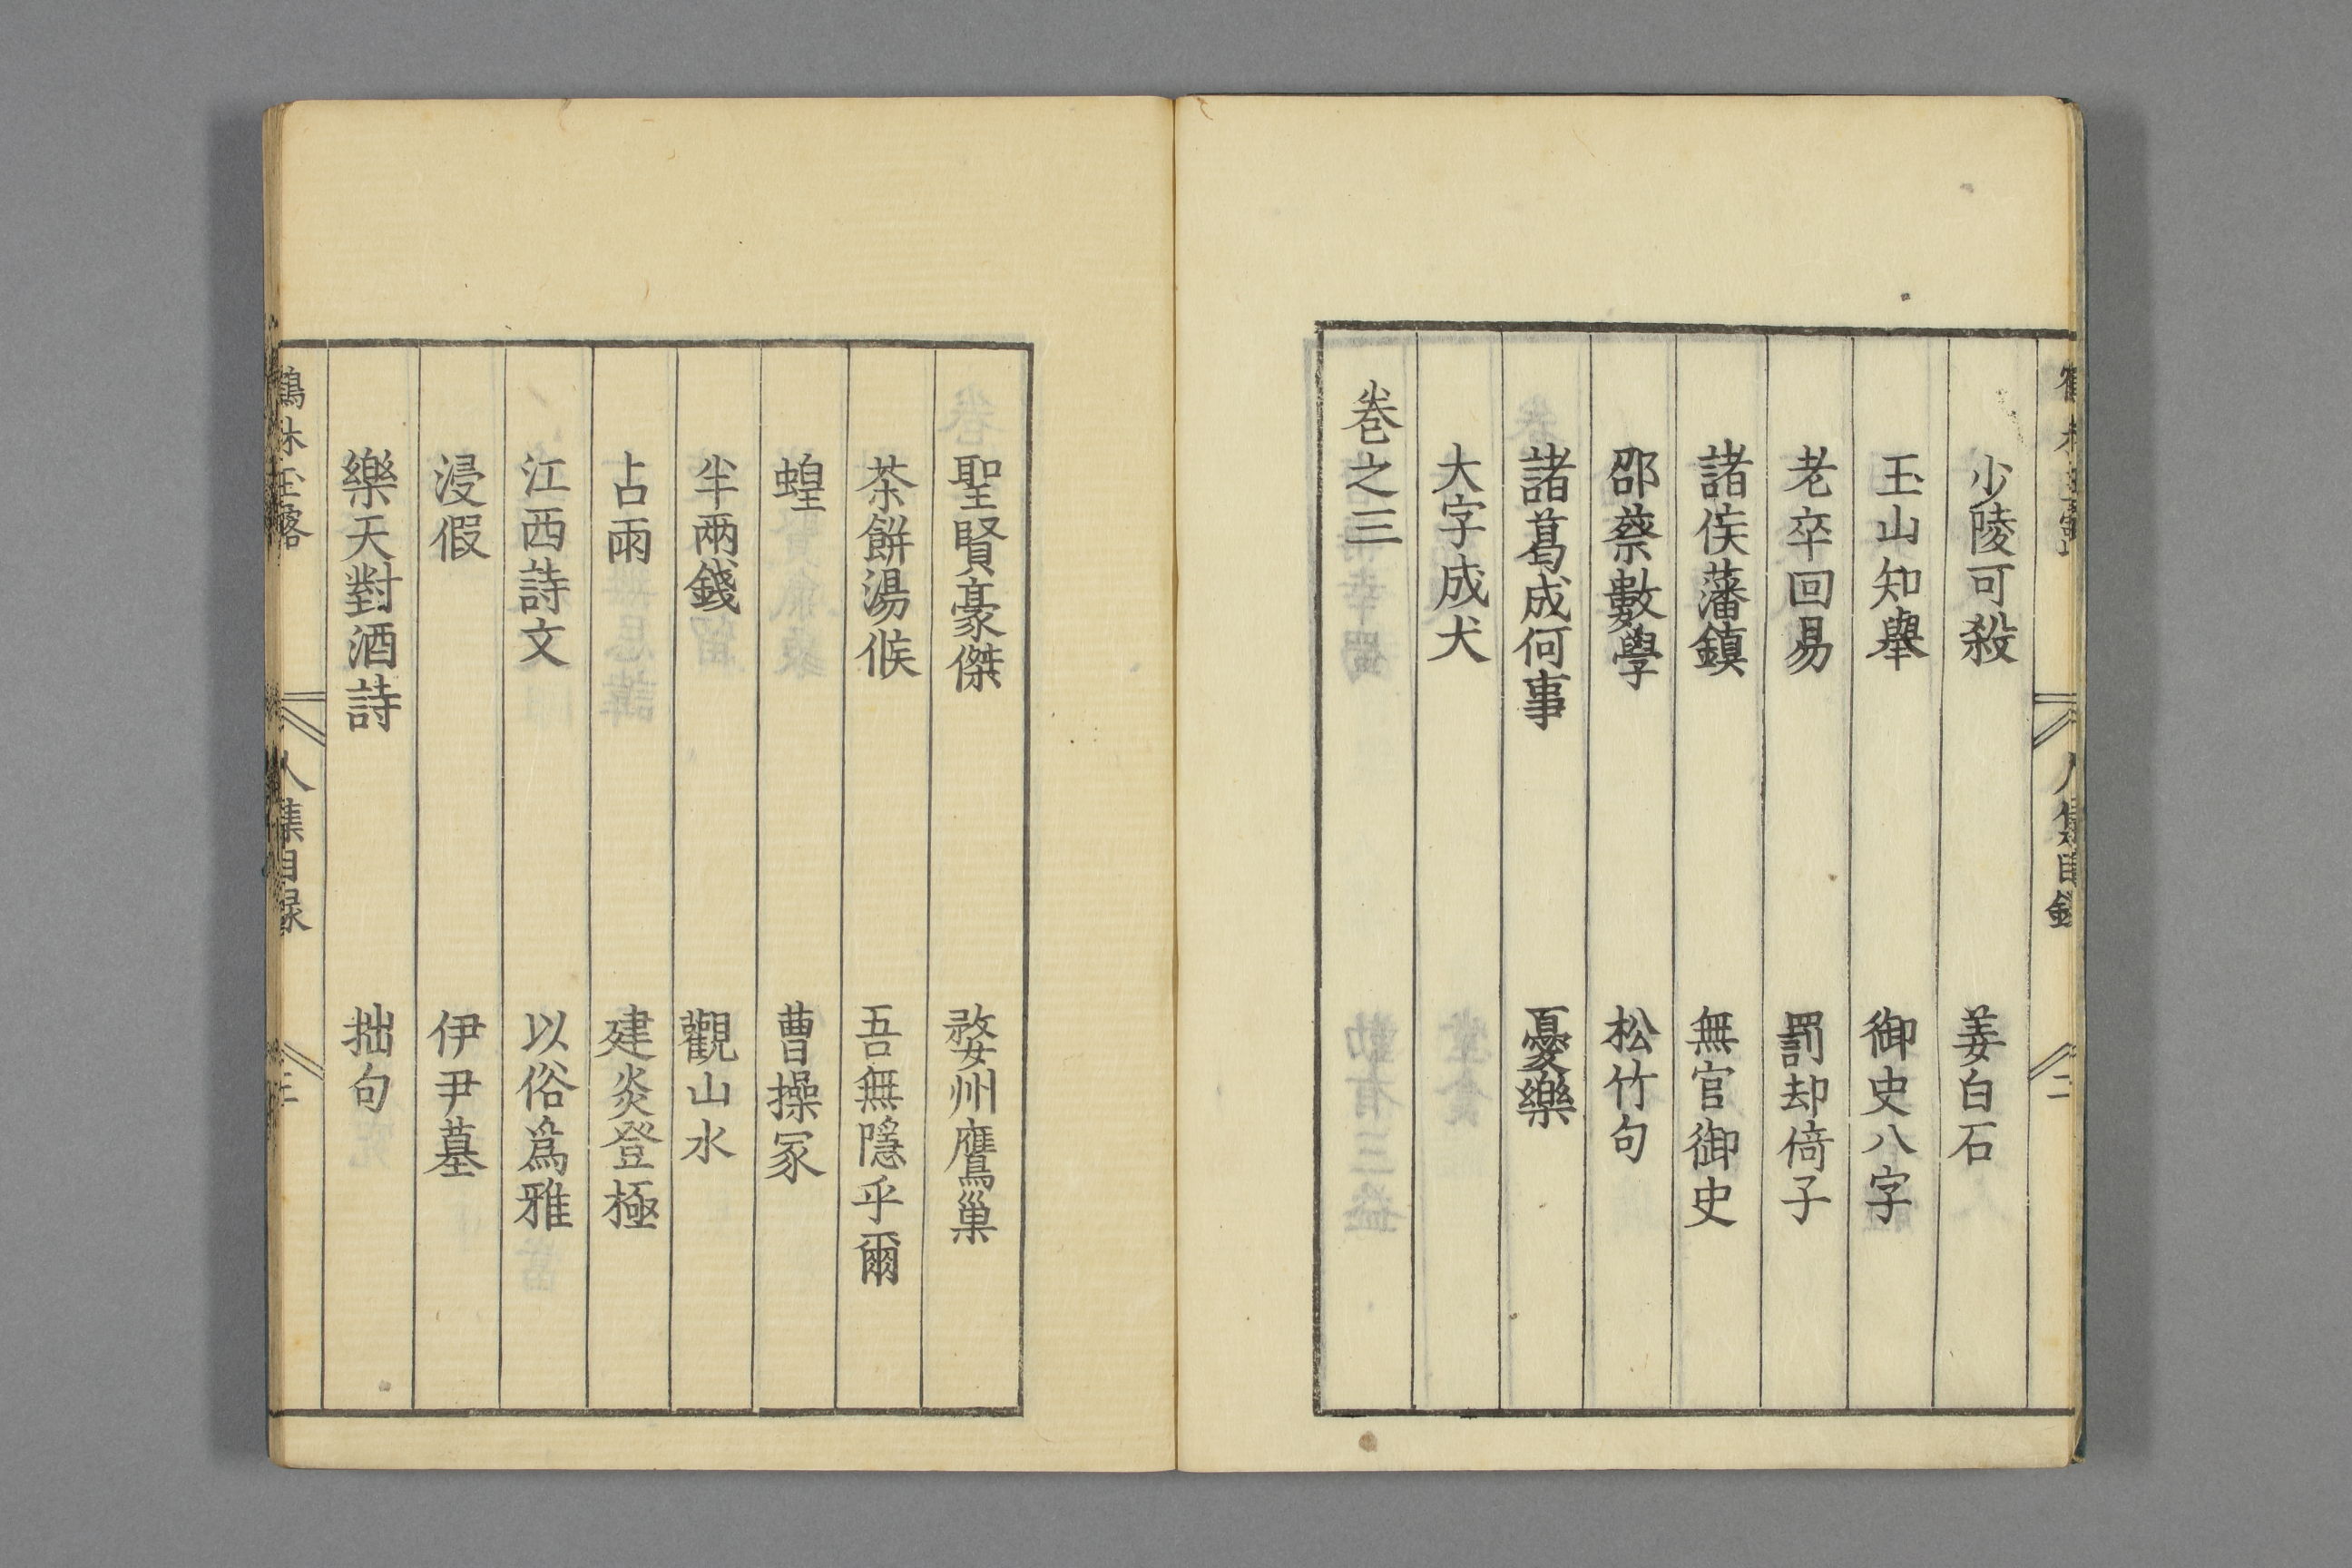 少陵可殺　姜白石
玉山知舉　御史八字
老卒回易　罰却倚子
諸侯藩鎮　無官御史
邵蔡數學　松竹句
諸葛成何事　憂樂
大字成犬
卷之三
聖賢豪傑　婺州鷹巢
茶餅湯候　吾無隱乎爾
蝗　曹操冢
半兩錢　觀山水
占雨　建炎登極
江西詩文　以俗爲雅
浸假　伊尹墓
樂天對酒詩　拙句
鶴林玉露　人集目録　三